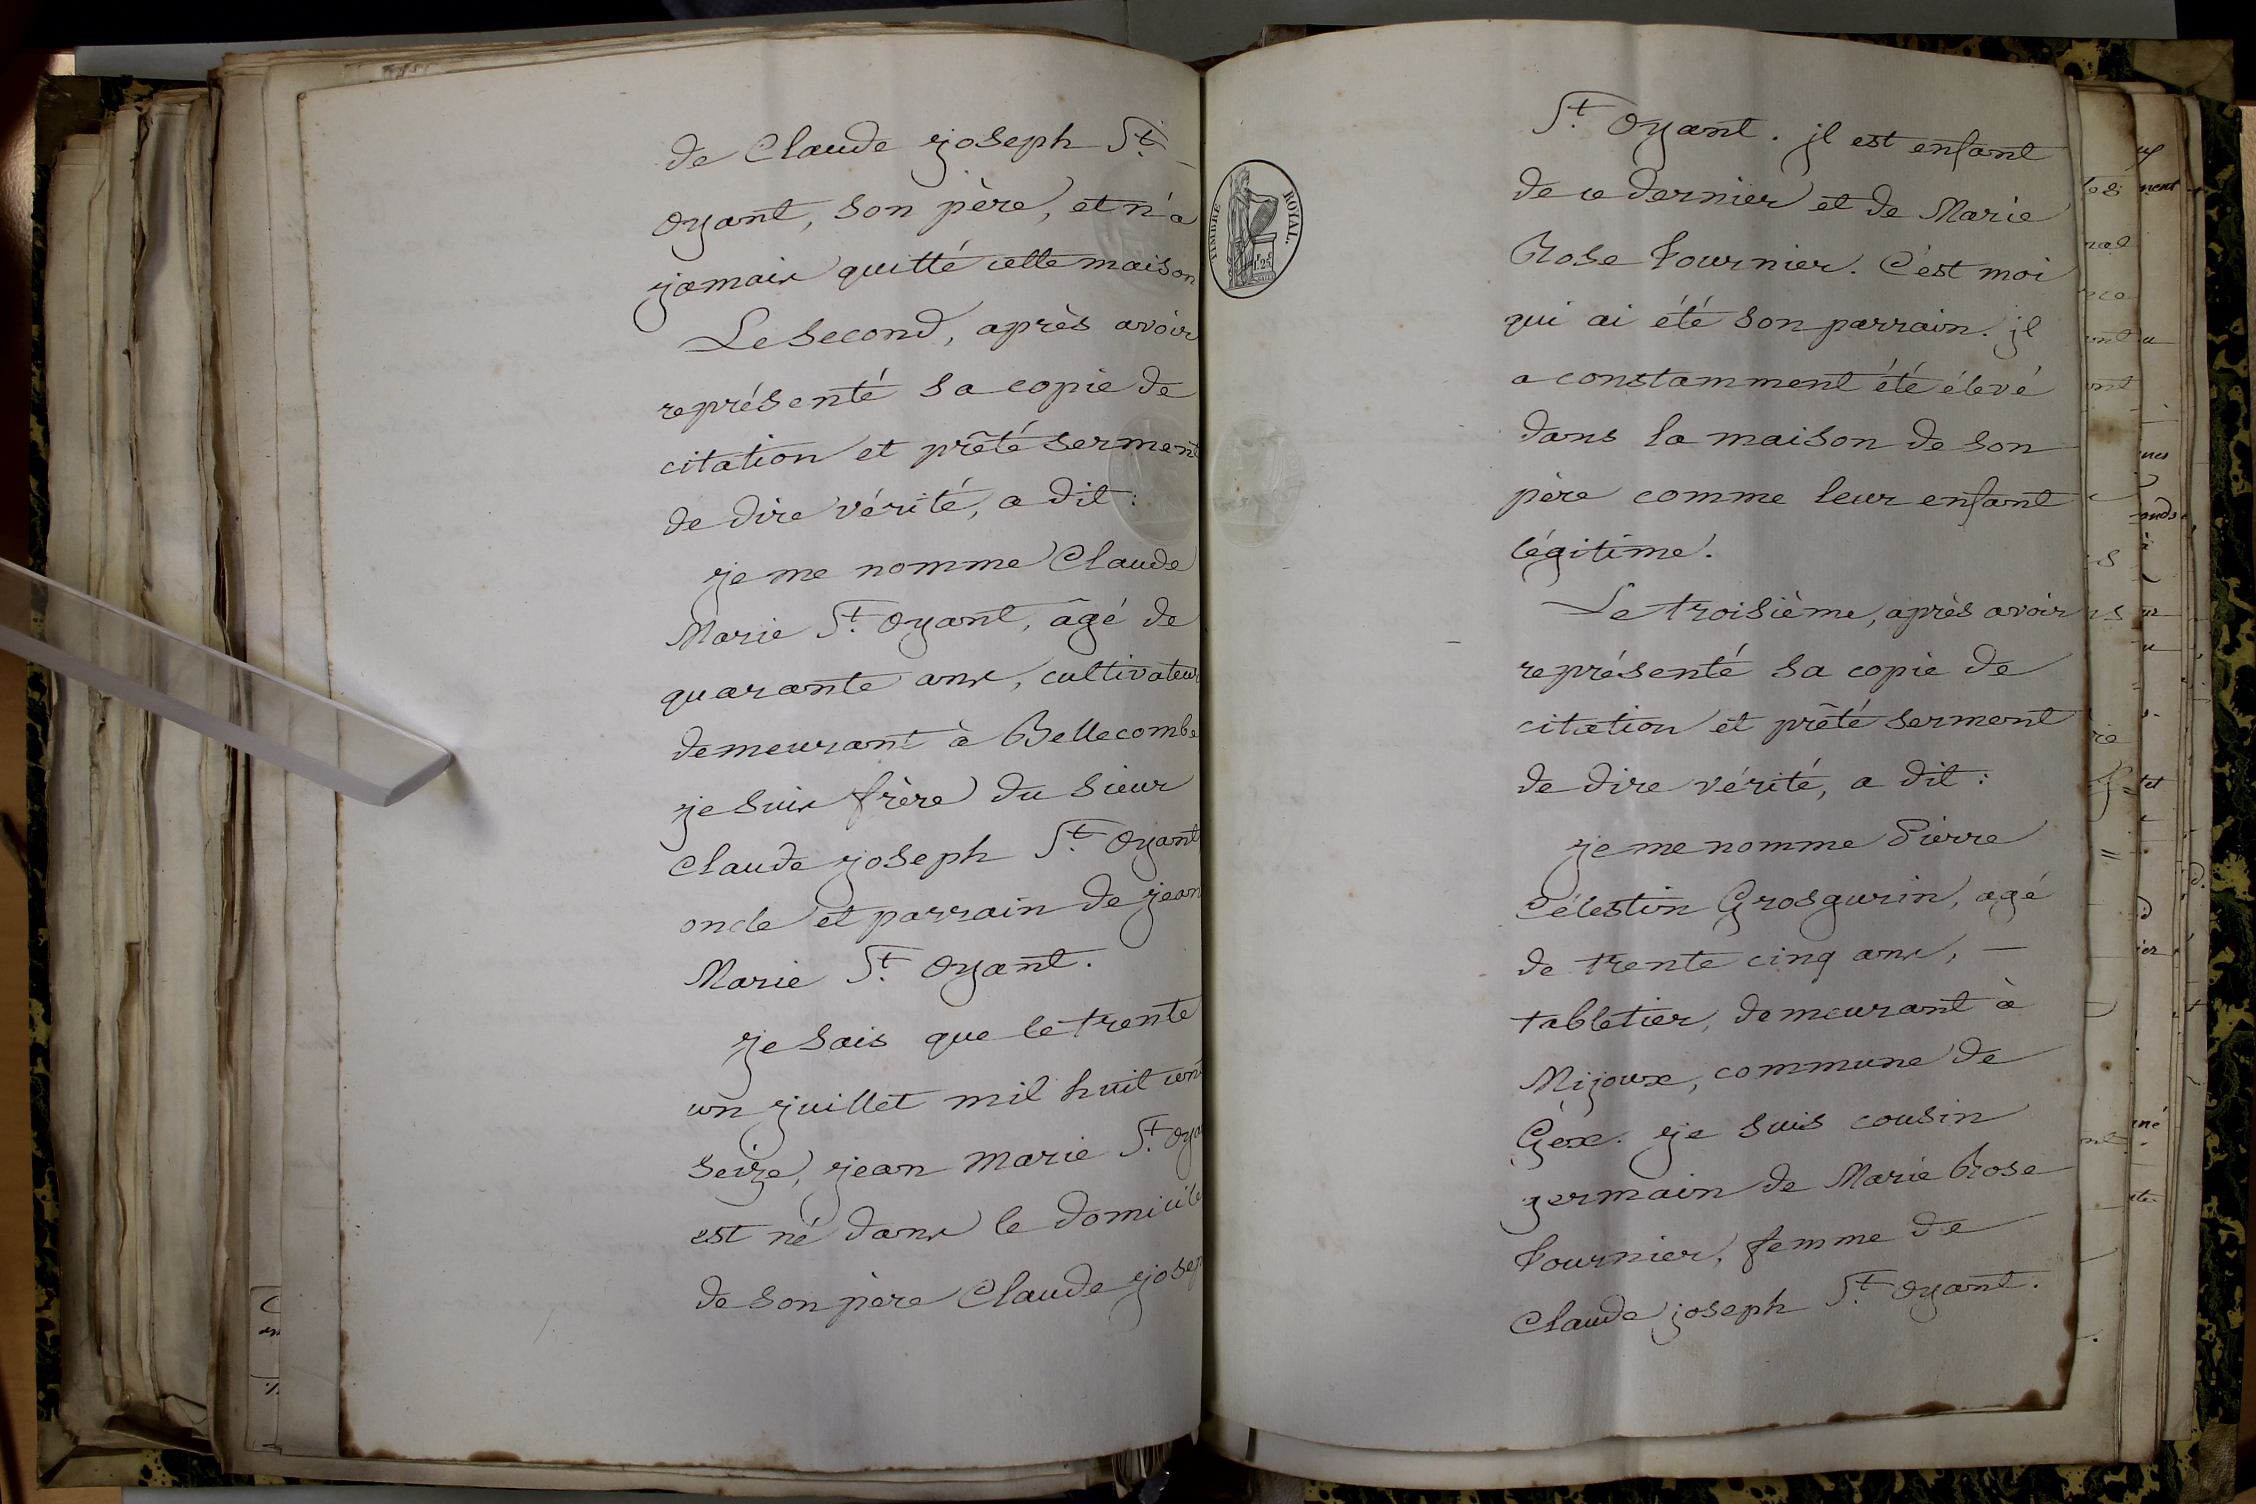 de Claude joseph St.
oyant, son père, et n'a
jamais quitté cette maison
Le second, après avoir
représenté sa copie de
citation et prêté serment
de dire vérité, a dit :
je me nomme Claude
Marie St. Oyant, âgé de
quarante ans, cultivateur
demeurant à Bellecombe
je suis frère du sieur
Claude joseph St. Oyant
oncle et parrain de jean
Marie St. Oyant.
je sais que le trente
un juillet mil huit cent
seize, jean Marie St. Oya
est né dans le domicile
de son père Claude josep
St. Oyant. jl est enfant
de ce dernier et de Marie
Rose Fournier. C'est moi
qui ai été son parrain. jl
a constamment été élevé
dans la maison de son
père comme leur enfant
légitime.
Le troisième, après avoir
représenté sa copie de
citation et prêté serment
de dire vérité, a dit :
je me nomme Pierre
Célestin Grosgurin, agé
de trente cinq ans, —
tabletier, demeurant à
Mijoux, commune de
Gex. je suis cousin
germain de Marie Rose
Fournier, femme de
Claude joseph St. Oyant.
TIMBRE ROYAL.